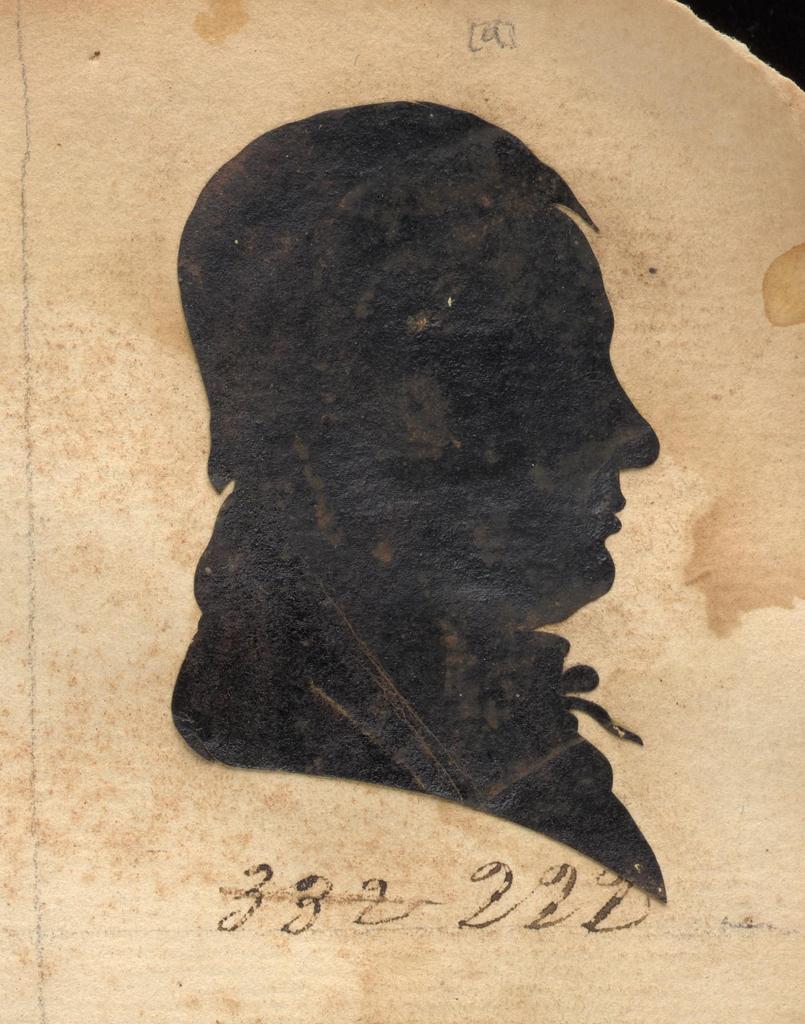 [a]
332 222